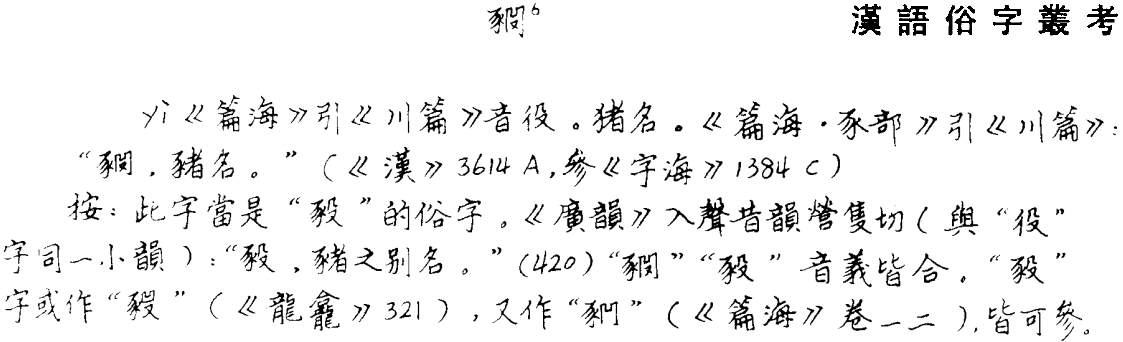 漢語俗字叢考
yì《篇海》引《川篇》音役。猪名。《篇海·豕部》引《川篇》：
“，豬名。”（《漢》3614 A，參《字海》1384 C）
按：此字當是“豛”的俗字。《廣韻》入聲昔韻營隻切（與“役”
字同一小韻）：“豛，豬之别名。”（420）“”“豛”音義皆合。“豛”
字或作“”（《龍龕》321），又作“”（《篇海》卷一二），皆可參。